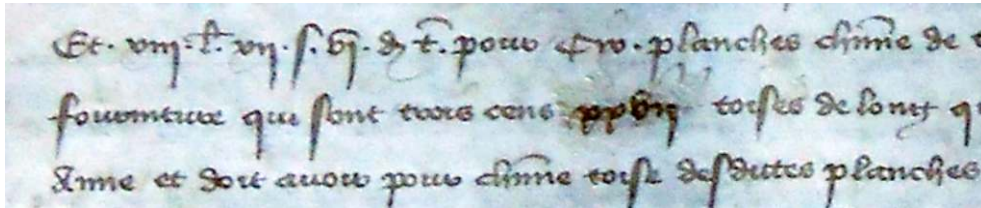 Et · viii · l̃ · vii · s · vi · d t̃ . pour Cix · planches chũne de
fourniture qui sont trois cens xxvii toises de long
Anne et doit avoir pour chũne toise desdictes planches